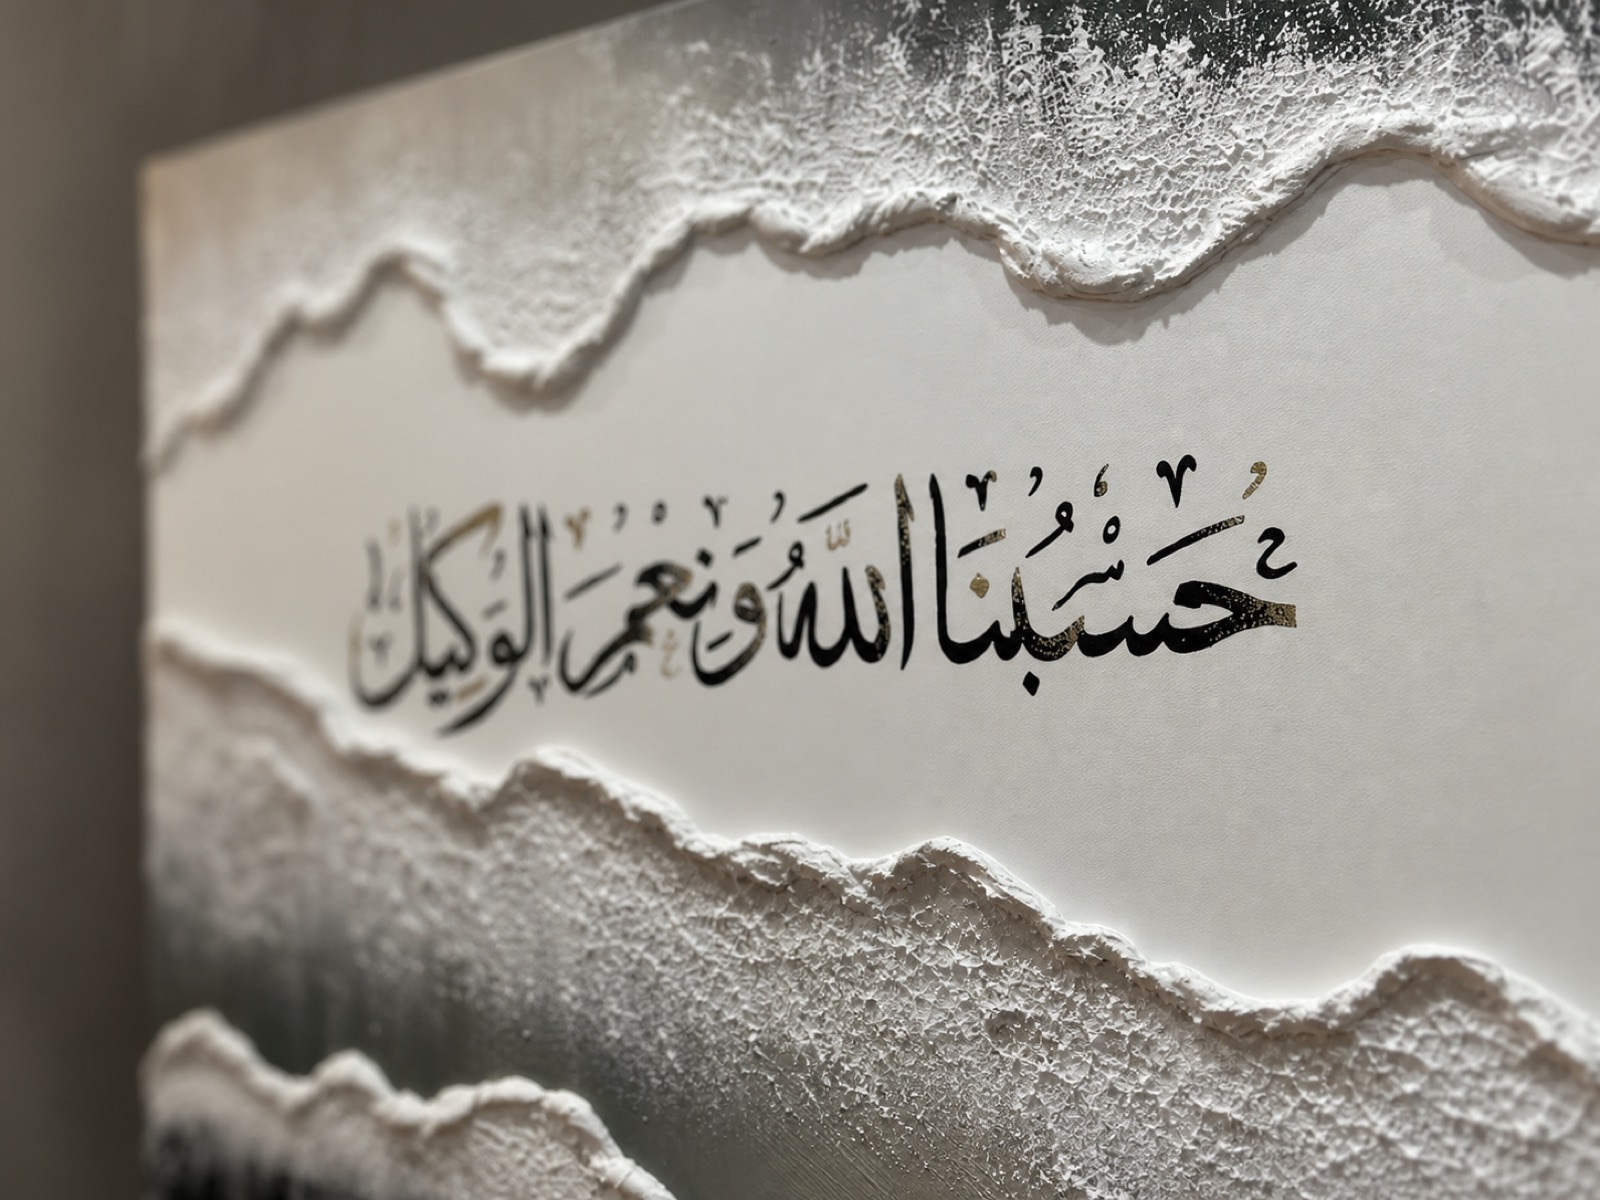 حَسْبُنَا اللَّهُ وَنِعْمَ الْوَكِيلُ